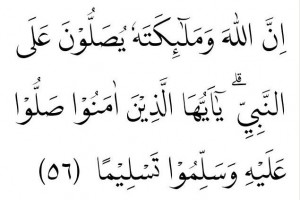 اِنَّ اللهَ وَمَلٰۤىِٕكَتَهٗ يُصَلُّوْنَ عَلَى
النَّبِيِّۗ يٰٓاَيُّهَا الَّذِيْنَ اٰمَنُوْا صَلُّوْا
عَلَيْهِ وَسَلِّمُوْا تَسْلِيْمًا (٥٦)